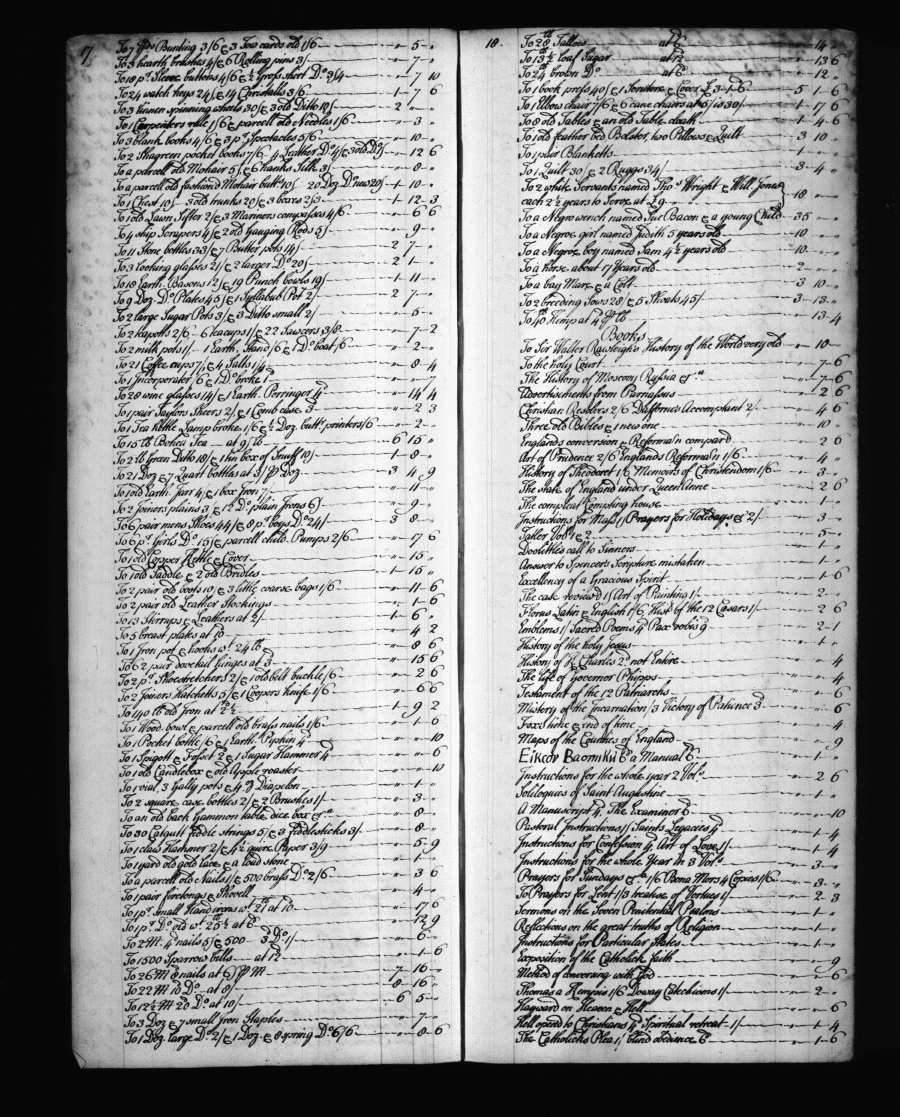 17
To 7 yds Bunting 3/6 & 3 Tow cards old 1/6 " 5 "
To 3 hearth brushes 4/ & 6 Rolling pins 3/ " 7 "
To 18 pr. Sleeve buttons 4/6 & ½ Gross shirt Do. 3/4 " 7 10
To 24 watch keys 24/ & 14 Christalls 3/6 1 7 6
To 3 linnen spinning wheels 30/ & 3 old Ditto 10/ 2 " "
To 1 Carpenters rule 1/6 & parcell old Needles 1/6 " 3 "
To 3 blank books 4/6 & 3 pr. Spectacles 5/6 " 10 "
To 2 Shagreen pocket books 7/6 4 Leather Do. 4/ & 3 old Do. " 12 6
To a parcell old Mohair 5/ & 6 hanks Silk 3/ " 8 "
To a parcell old fashiond Mohair butts. 10/ 20 Doz Do. new 20/ 1 10 "
To 1 Chest 10/ 3 old trunks 20/ & 3 boxes 2/3 1 12 3
To 1 old Lawn Sifter 2/ & 3 Mariners compasses 4/6 " 6 6
To 4 ship Scrapers 4/ & 2 old Gauging Rods 5/ " 9 "
To 11 Stone bottles 33/ & 7 Butter pots 14/ 2 7 "
To 3 looking glasses 21/ & 2 larger Do. 20/ 2 1 "
To 18 Earth. Basons 12/ & 19 Punch bowls 19/ 1 11 "
To 9 Doz. Do. Plates 45/ & 1 Syllabub Pot 2/ 2 7 "
To 2 large Sugar Pots 3/ & 3 Ditto small 2/ " 5 "
To 2 teapotts 2/6 6 teacups 1/ & 22 Sawcers 3/8 " 7 2
To 2 milk pots 1/ 1 Earth. Stand /6 & 1 Do. boat /6 " 2 "
To 21 Coffee cups 7/ & 4 Salts 1/4 " 8 4
To 1 Incorporater /6 & 1 Do. broke
To 28 wine glasses 14/ & 1 Earth. Porringer 4d " 14 4
To 1 pair Taylors Sheers 2/ & 1 Comb case 3 " 2 3
To 1 Tea Kettle Lamp broke 1/6 & ½ Doz. butt. printers /6 " 2 "
To 15 lb Bohea Tea at 9/ lb 6 15 "
To 2 lb Green Ditto 18/ & 1 tin box of Snuff 10/ 1 8 "
To 21 Doz & 7 Quart bottles at 3/ p Doz. 3 4 9
To 1 old Earth. Jarr 4/ & 1 box Iron 7/ " 11 "
To 2 Joiners plains 3/ & 12 Do. plain Irons 6/ " 9 "
To 6 pair mens Shoes 44/ & 8 pr. boys Do. 24/ 3 8 "
To 6 pr. Girls Do. 15/ & parcell child. Pumps 2/6 " 17 6
To 1 old Copper Kettle & Cover " 15 "
To 1 old Saddle & 2 old Bridles 1 15 "
To 2 pair old boots 10/ & 3 little coarse bags 1/6 " 11 6
To 2 pair old Leather Stockings " 1 6
To 13 Stirrups & Leathers at 2/ 1 6 "
To 5 breast plates at 10d " 4 2
To 1 Iron pot & hooks wt. 24 lb " 8 6
To 62 pair dovetail hinges at 3d " 15 6
To 2 pr. Shoestretchers 2/ & 1 old belt buckle /6 " 2 6
To 2 Joiners Hatchetts 5/ & 1 Coopers knife 1/6 " 6 6
To 140 lb old Iron at 2½ 1 9 2
To 1 Wood. bowl & parcell old brass nails 1/6 " 1 6
To 1 Pocket bottle /6 & 1 Earth. Pipkin 4d " " 10
To 1 Spigott & Fosset 2d & 1 Sugar Hammer 4d " " 6
To 1 old Candlebox & old Apple roaster " " 10
To 1 vial, 3 Gally pots & 4 oz Diapalm " 1 "
To 2 square case bottles 2/ & 2 Brushes 1/ " 3 "
To an old back Gammon table, dice box &ca " 8 "
To 30 Catgutt fiddle strings 5/ & 3 fiddlesticks 3/ " 8 "
To 1 claw Hammer 2/ & 4½ quire Paper 3/9 " 5 9
To 1 yard old gold lace & a load stone " 1 "
To a parcell old Nails 1/ & 500 brass Do. 2/6 " 3 6
To 1 pair firetongs & Shovell " 4 "
To 1 pr. small Handirons wt. 21 lb at 10 " 17 6
To 1 pr. Do. old wt. 25½ at 6 " 12 9
To 2 M. 4d nails 5/ & 500 3d Do. 1/ " 6 "
To 1500 Sparrow bills at 12 " 1 6
To 26 M 8 nails at 6/ p M 7 16 "
To 22 M 10 Do. at 8/ 8 16 "
To 12½ M 20 Do. at 10/ 6 5 "
To 3 Doz & 7 small Iron Staples " 7 "
To 1 Doz. large Do. 2/ & 1 Doz & 8 spring Do. 6/6 " 8 6
18.
To 28 lb Tallow at 6 " 14 "
To 13½ loaf Sugar at 12 " 13 6
To 24 brown Do. at 6 " 12 "
To 1 book press 40/ & 1 Scrutore & Cover £ 3-1-6 5 1 6
To 1 Elbow chair 7/6 & 6 cane chairs at 5/ is 30/ 1 17 6
To 8 old Tables & an old Table cloath 1 4 6
To 1 old feather bed Bolster two Pillows & Quilt 3 10 "
To 1 pair Blanketts 1 "
To 1 Quilt 30/ & 2 Ruggs 34/ 3 4 "
To 2 white Servants named Thos. Wright & Will Jones
each 2½ years to Serve at £9 18 "
To a Negro wench named Sue Bacon & a young Child 35 "
To a Negroe girl named Judith 5 years old 10 "
To a Negroe boy named Sam 4½ years old 10 "
To a horse about 17 Years old 2 "
To a bay Mare & a Colt 3 10 "
To 2 breeding Sows 28/ & 5 Shoats 45/ 3 13 "
To 40 Hemp at 4d p lb " 13 4
Books
To Sir Walter Rawleigh's History of the World very old " 10 "
To the holy Court " 7 6
The History of Moscovy Russia &ca " 7 6
Advertisements from Parnassus " 2 6
Christian Resolves 2/6 Dafforne's Accomptant 2/ " 4 6
Three old Bibles & 1 new one " 10 "
Englands conversion & Reforma'n compard " 2 6
Art of Prudence 2/6 Englands Reforma'n 1/6 " 4 "
History of Theodoret 1/6 Memoirs of Christendom 1/6 " 3 "
The state of England under Queen Anne " 2 6
The compleat Compting house " 1 "
Instructions for Mass 1/ Prayers for Holidays &c 2/ " 3 "
Tatler Vol. 1 & 2 " 5 "
Doolittles call to Sinners " 1 "
Answer to Spencers Scripture mistaken " 1 "
Excellency of a Gracious Spirit " 1 6
The case reviewd 1/ Art of Painting 1/ " 2 "
Florus Latin & English 1/6 Hist. of the 12 Cæsars 1/ " 2 6
Emblems 1/ Sacred Poems 4d Pax vobis 9 " 2 1
History of the holy Jesus " 1 "
History of K. Charles 2d. not Entire " " 4
The life of Governor Phipps " " 4
Testament of the 12 Patriarchs " " 6
Mistory of the Incarnation /3 Victory of Patience 3 " " 6
Foxs time & end of time " " 4
Maps of the Counties of England " " 9
Eikcov Baoтιкι 6d a Manual 6 " 1 "
Instructions for the whole year 2 Vols. " 2 6
Soliloquies of Saint Augustine " 1 "
A Manuscript 4, The Examiner 6 " " 10
Pastoral Instructions 1/ Saints Legacies 4d " 1 4
Instructions for Confession 4, Art of Love 1/ " 1 4
Instructions for the whole Year in 3 Vols. " 3 "
Prayers for Sundays &ca 1/6 Bona Mors 4 Copies 1/6 " 3 "
To Prayers for Lent 1/3 treatise of Vertues 1/ " 2 3
Sermons on the Seven Penitential Psalms " 1 "
Reflections on the great truths of Religion " 1 "
Instructions for Particular States " 1 "
Exposition of the Catholick faith " " 9
Method of conversing with God " " 6
Thomas a Kempis 1/6 Doway Catechisms 1/ " 2 "
Hayward on Heaven & Hell " " 6
Hell opend to Christians 4d Spiritual retreat 1/ " 1 4
The Catholicks Plea 1/ blind obedience 6d " 1 6